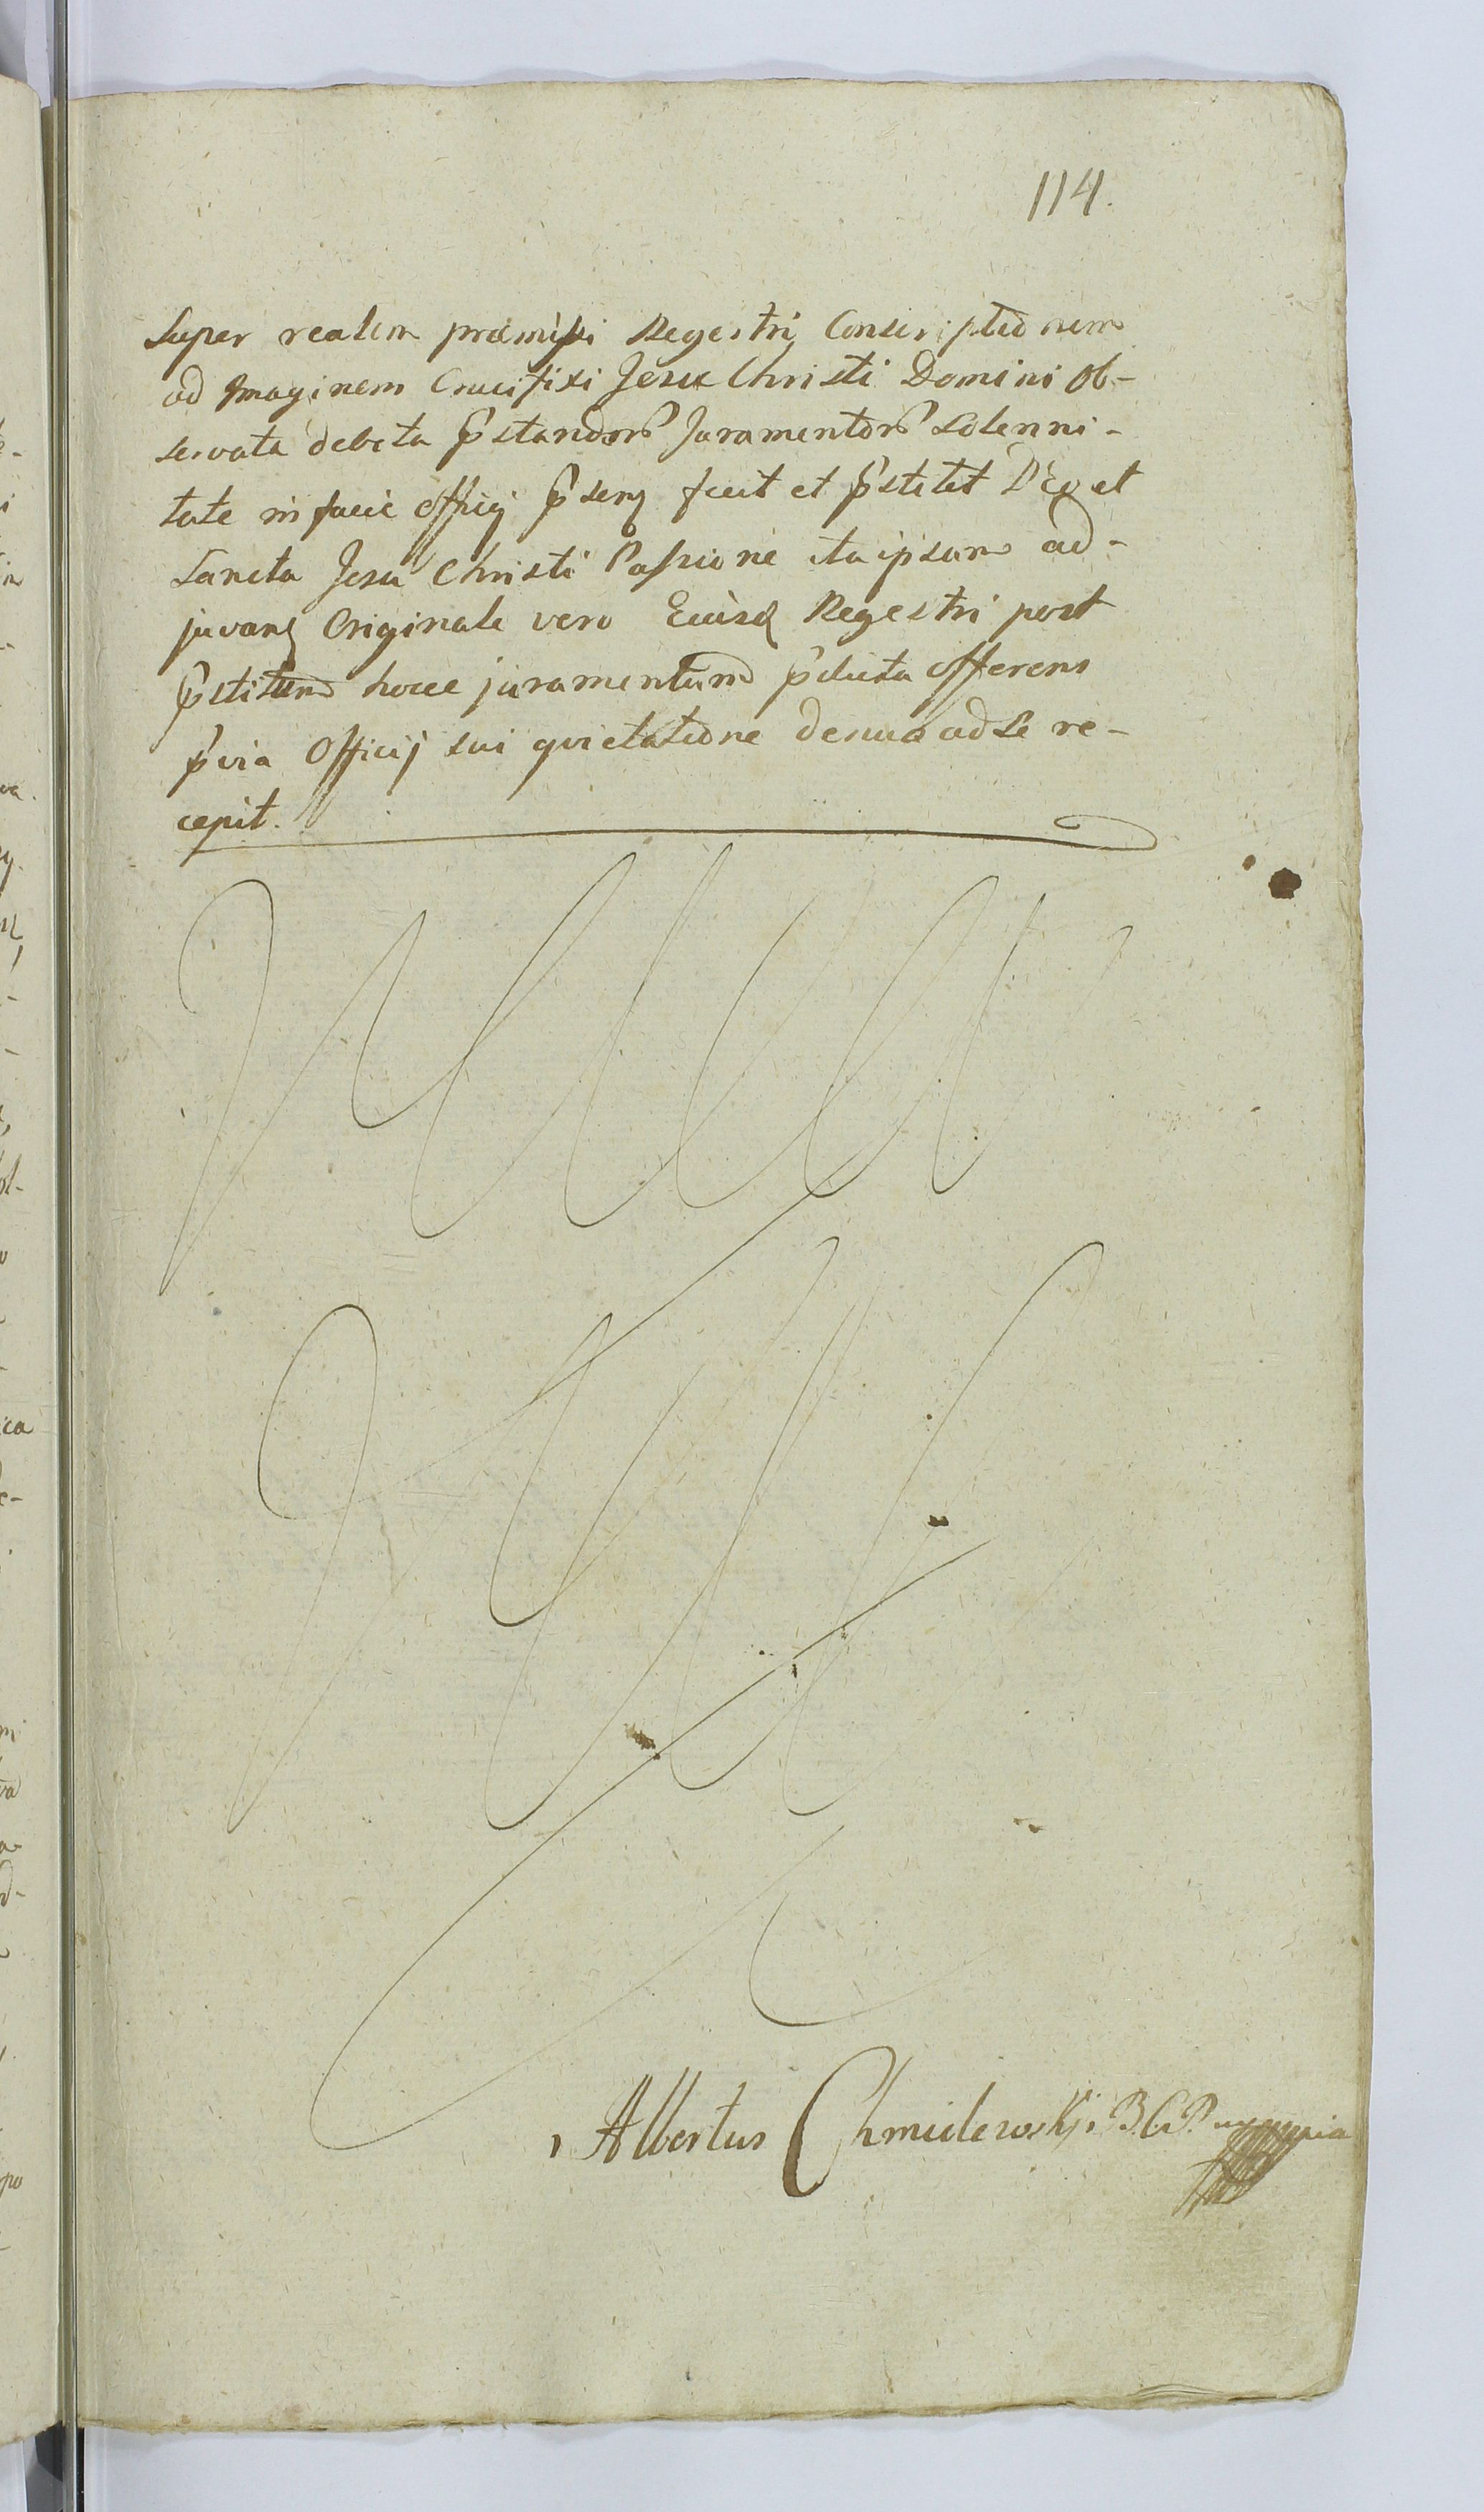 114.
Super realem præmissi Regestri Conscriptionem
ad Imaginem Crucifixi Jesu Christi Domini Ob-
servata debita p̃standor̃ Juramentor̃ Solenni-
tate in facie Officij p̃sen̄ fecit et p̃stitit DEo et
Sancta Jesu Christi Passione ita ipsum ad-
juvan̄ Originale vero Eiusd̄ Regestri post
p̃stitum hocce juramentum offerens
p̃via Officij sui quietatione denuo ad se re-
cepit.
Albertus Chmielewskj. B. C. P. mppria